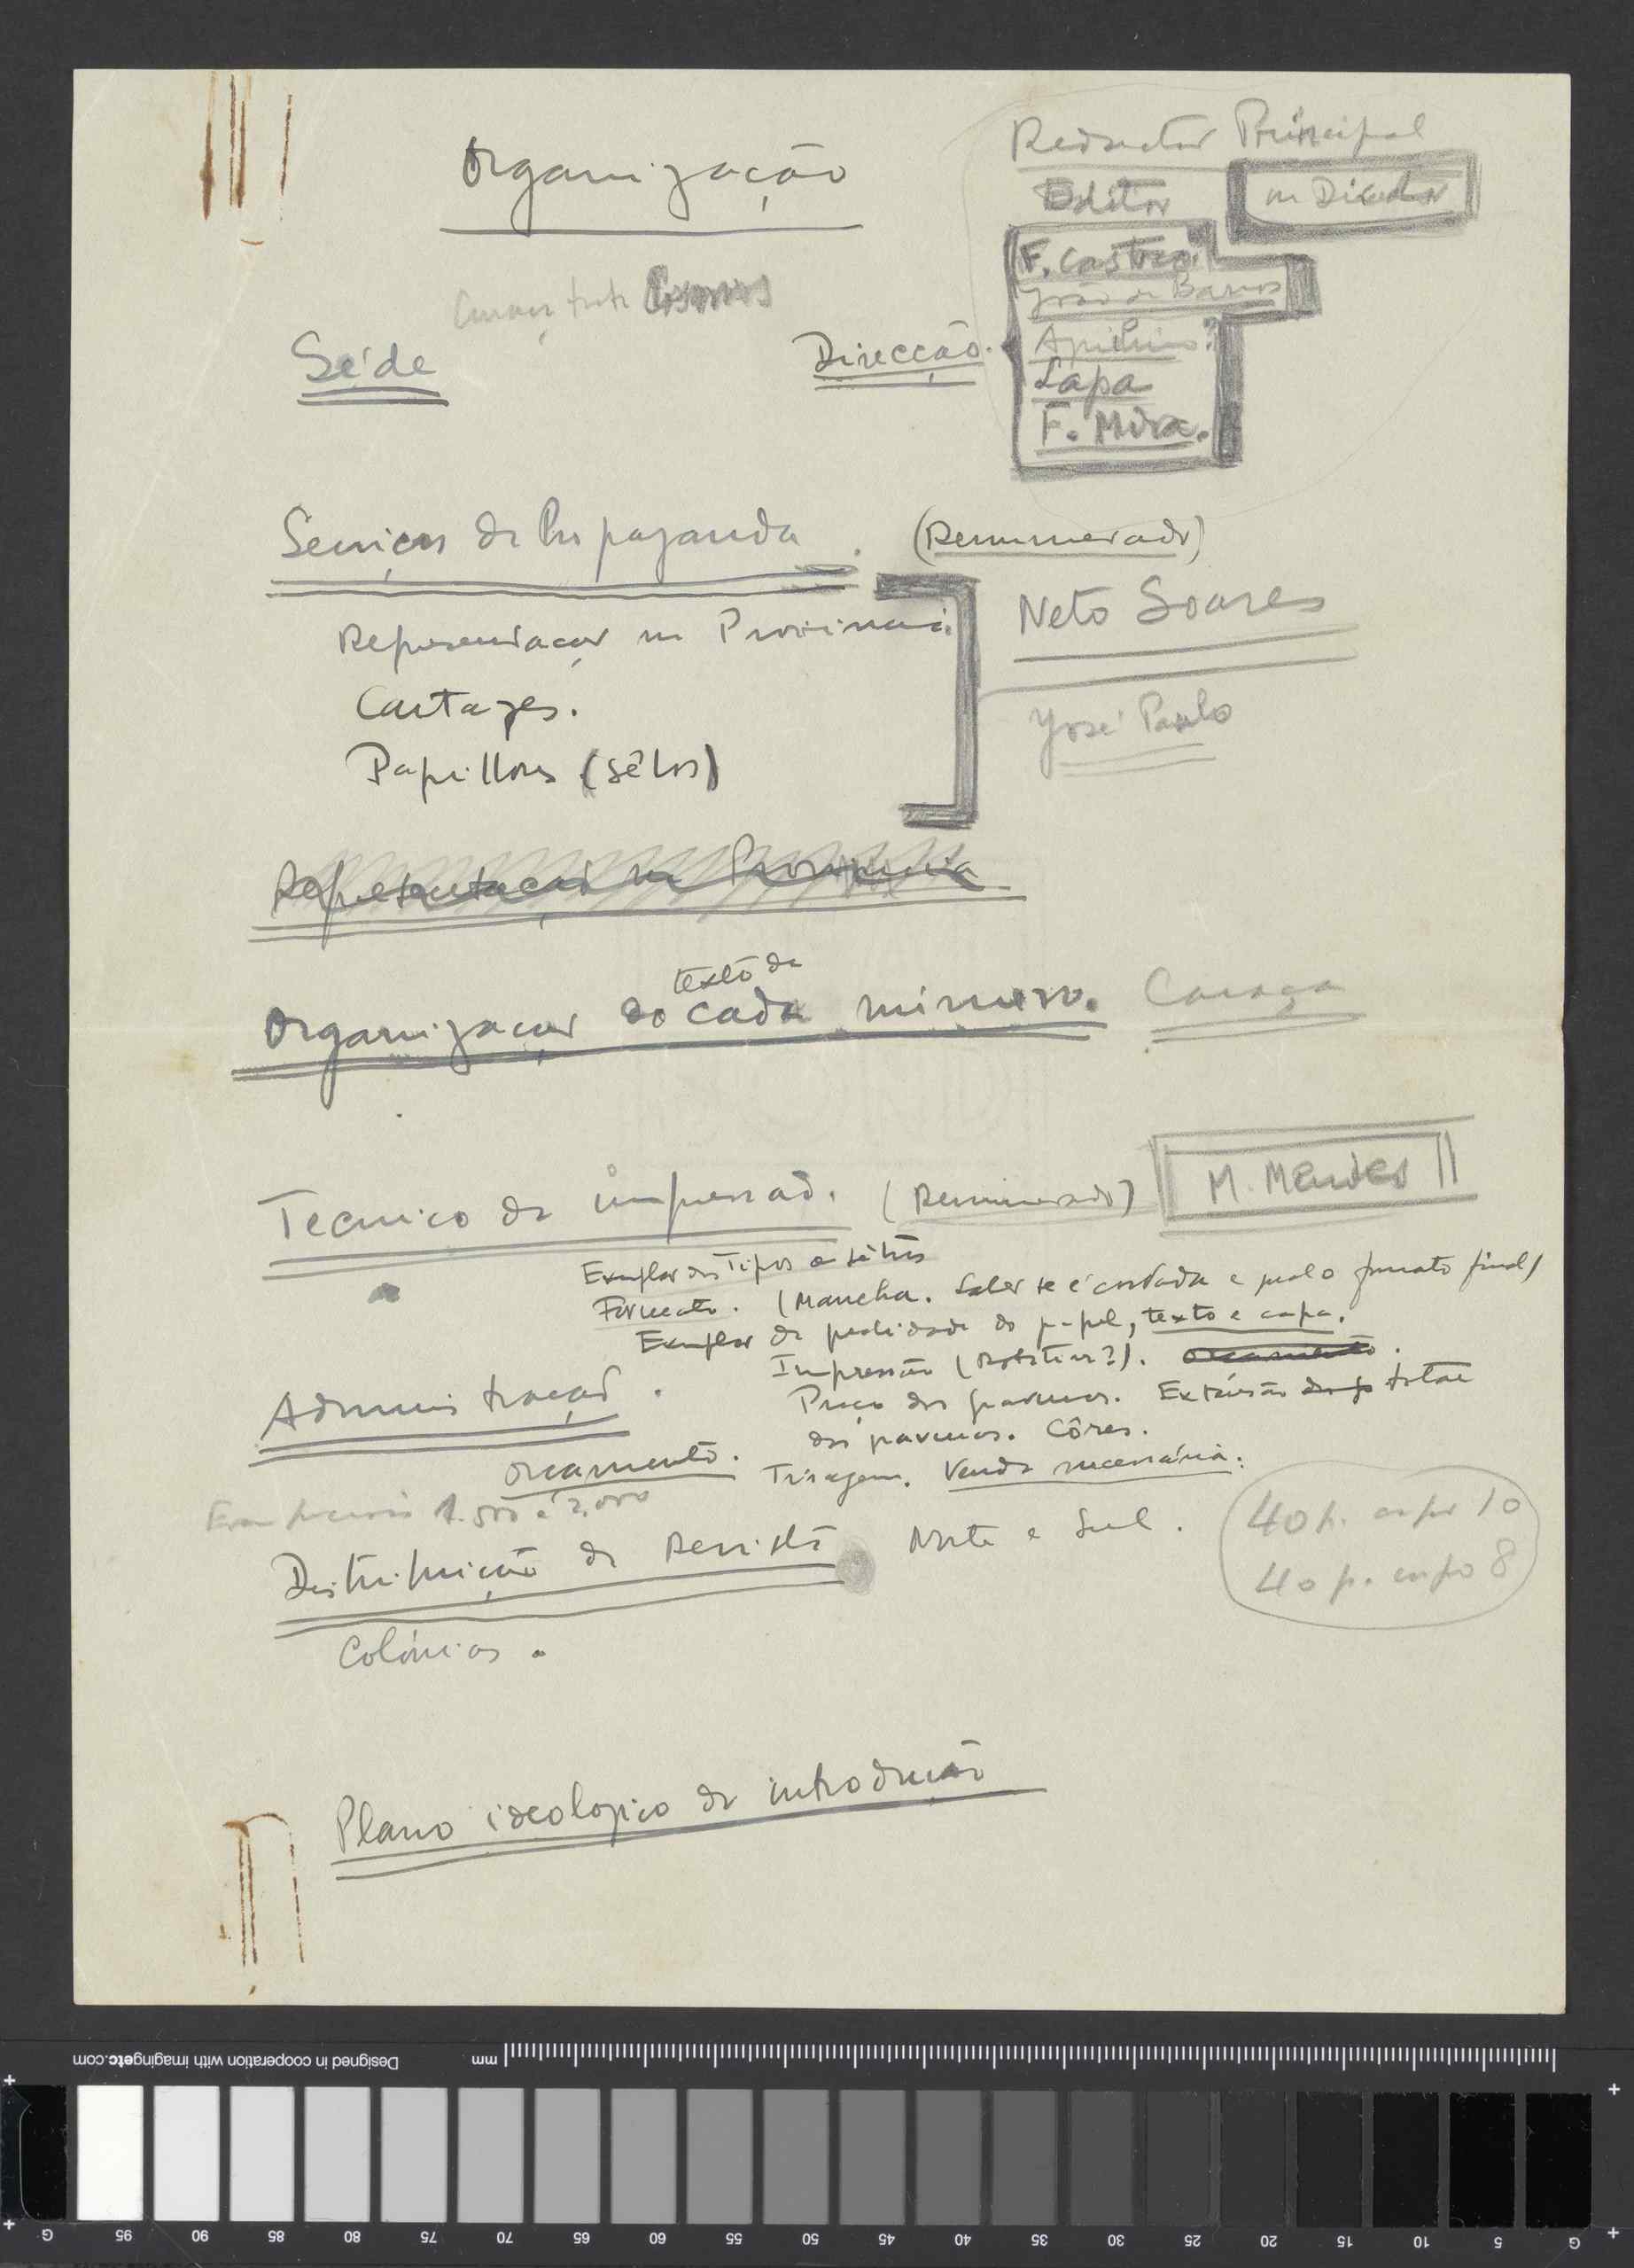 Organização
Redactor Principal
Editor
ou Director
F. Castro.
João de Barros
Aquilino?
Lapa
F. Mira.
Cosmos
Séde
Direcção.
Serviços de Propaganda. (Remunerado)
Representação na Provincia.
Neto Soares
Cartazes.
José Paulo
Papillons (sêlos)
Representação na Provincia
texto de
Organização do cada número. Caraça
Tecnico de impressão. (Remunerado) M. Mendes
Exemplar dos Tipos
Formato. (Mancha. Saber se é cortada e qual o formato final)
Exemplar de qualidade do papel, texto e capa.
Impressão (Rotativa?). Orçamento.
Administração.
Preço das gravuras. Extensão total
das gravuras. Côres.
Orçamento. Tiragem. Venda necessária.
1.500 a 2.000
40 p. corpo 10
40 p. corpo 8
Distribuição da Revista Norte e Sul.
Colónias.
Plano ideologico de introdução
Designed in cooperation with imagingetc.com
mm
G 95 90 85 80 75 70 65 60 55 50 45 40 35 30 25 20 15 10 5 G